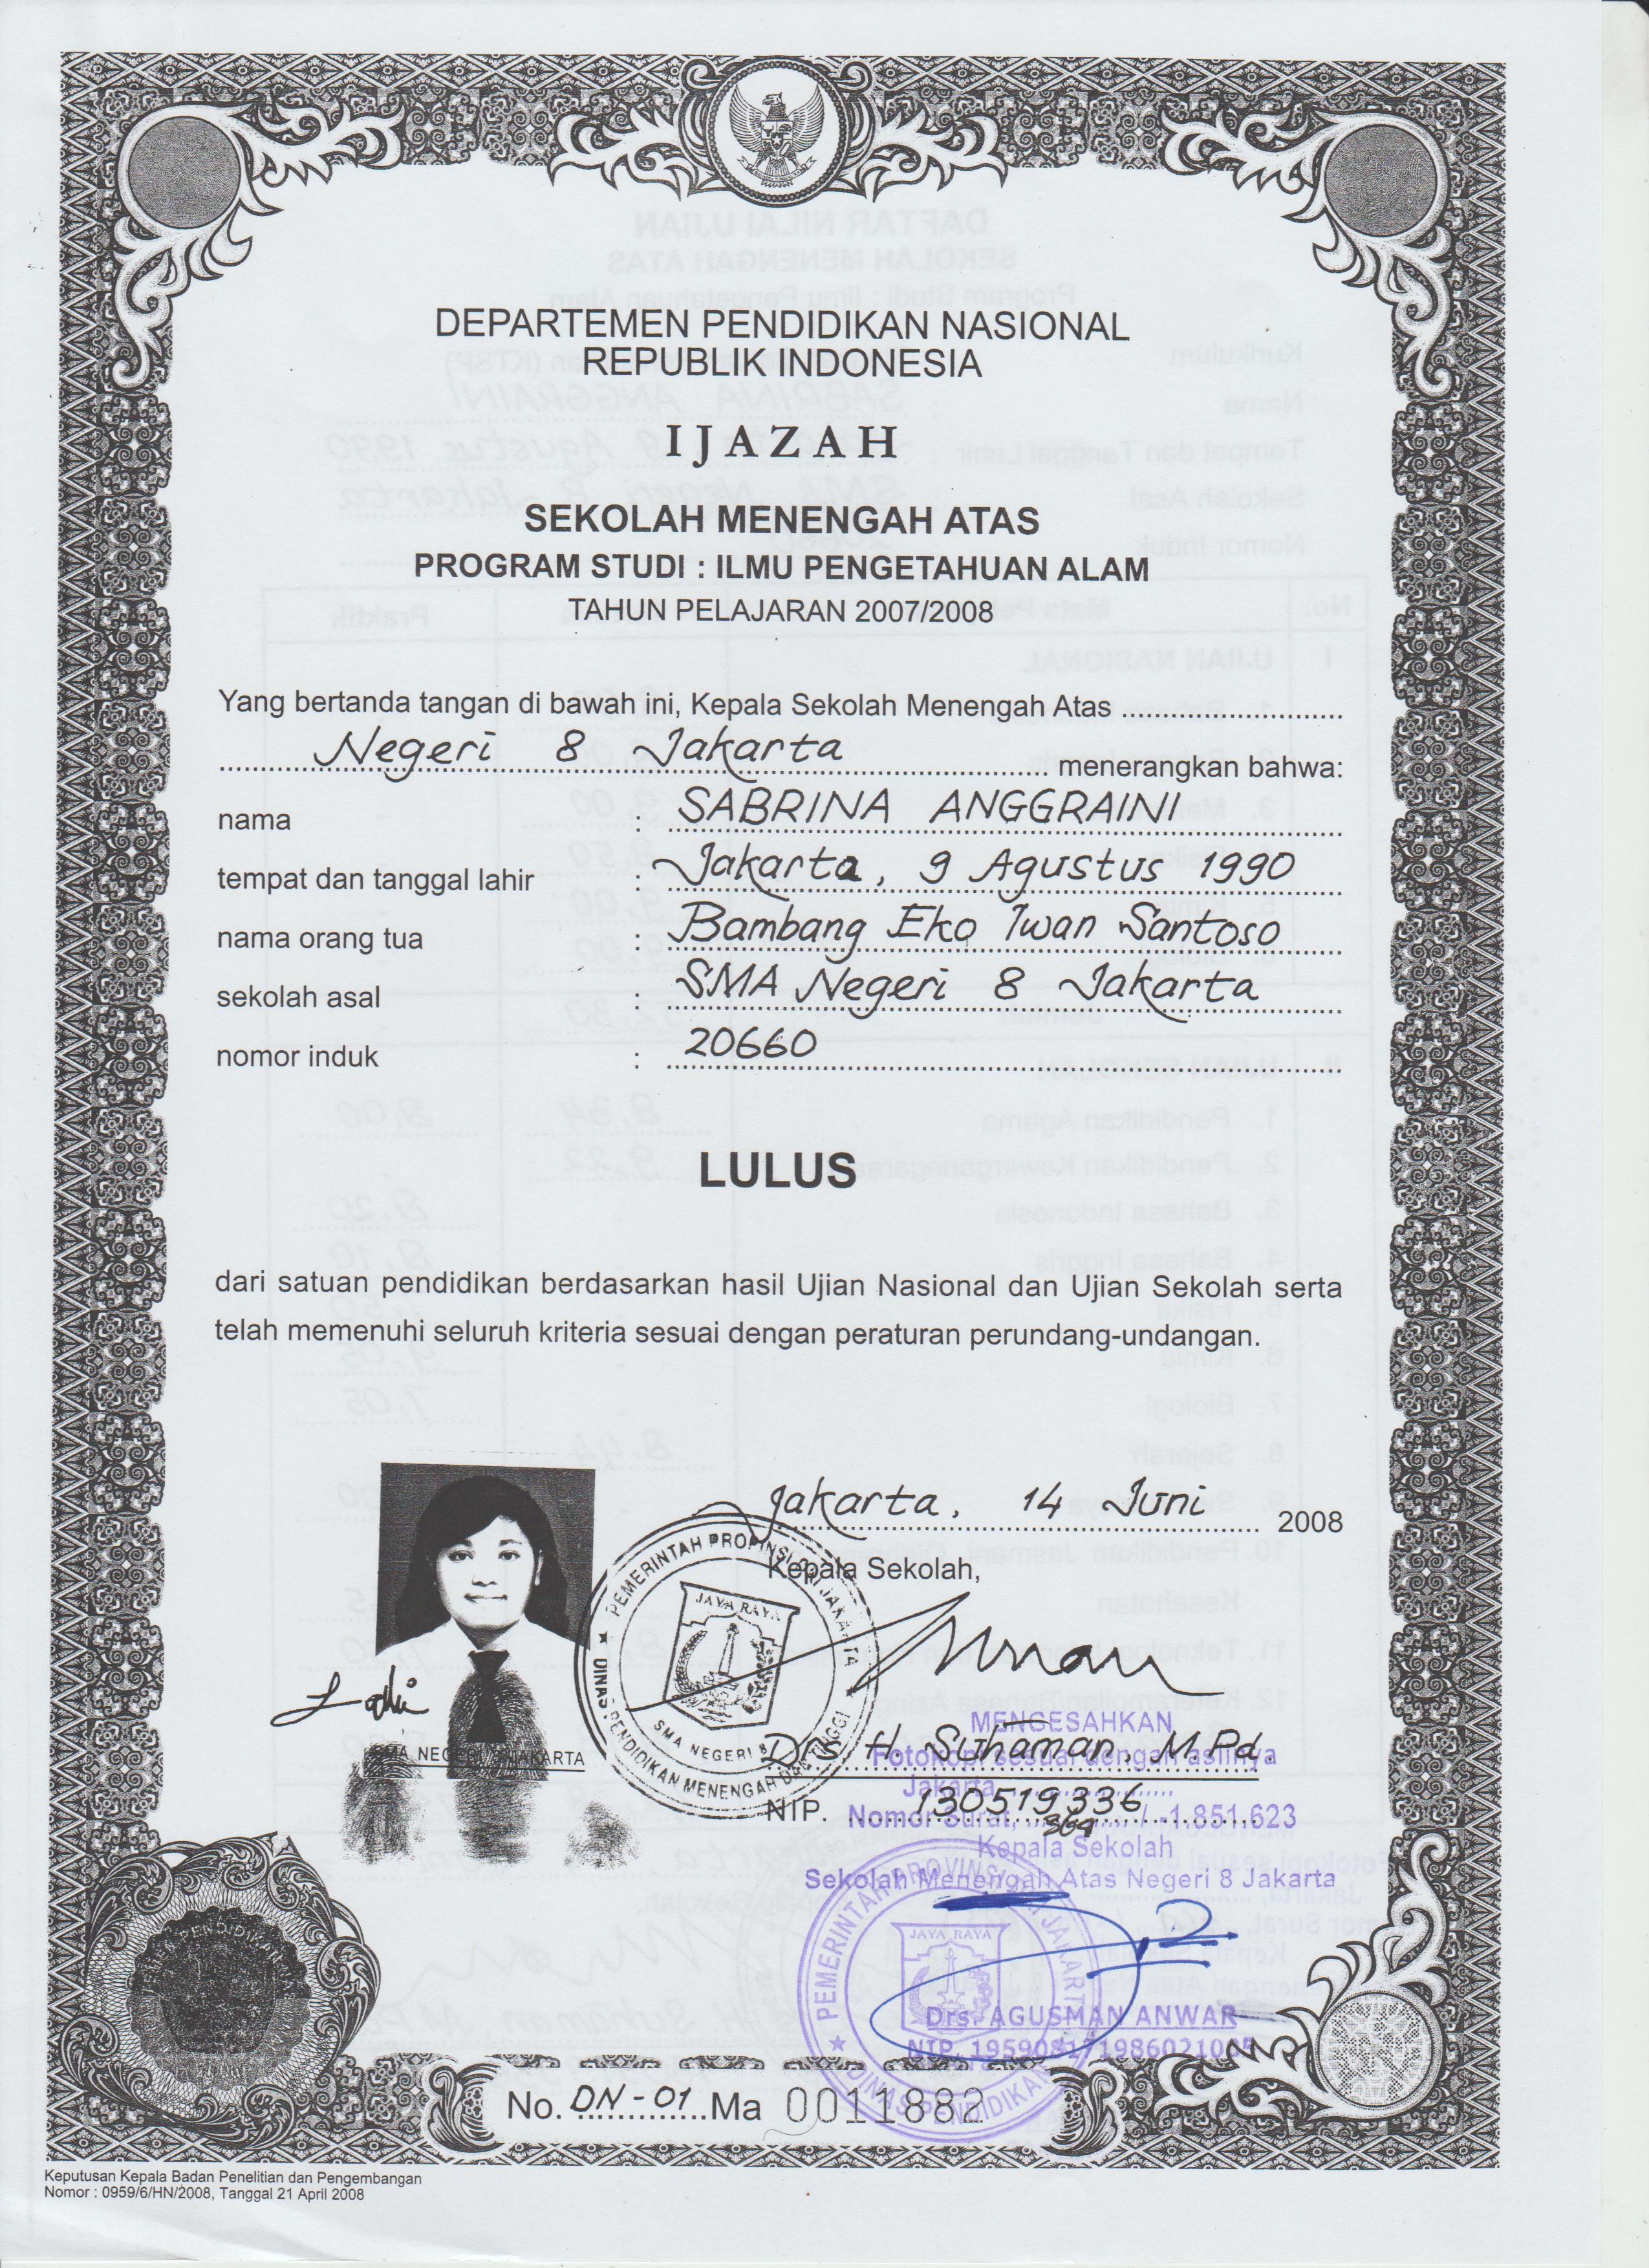 DEPARTEMEN PENDIDIKAN NASIONAL
REPUBLIK INDONESIA
IJAZAH
SEKOLAH MENENGAH ATAS
PROGRAM STUDI : ILMU PENGETAHUAN ALAM
TAHUN PELAJARAN 2007/2008
Yang bertanda tangan di bawah ini, Kepala Sekolah Menengah Atas
Negeri 8 Jakarta menerangkan bahwa:
nama : SABRINA ANGGRAINI
tempat dan tanggal lahir : Jakarta, 9 Agustus 1990
nama orang tua : Bambang Eko Iwan Santoso
sekolah asal : SMA Negeri 8 Jakarta
nomor induk : 20660
LULUS
dari satuan pendidikan berdasarkan hasil Ujian Nasional dan Ujian Sekolah serta
telah memenuhi seluruh kriteria sesuai dengan peraturan perundang-undangan.
Jakarta, 14 Juni 2008
Kepala Sekolah,
PEMERINTAH PROPINSI DKI JAKARTA
JAYA RAYA
SMA NEGERI 8
DINAS PENDIDIKAN MENENGAH DAN TINGGI
SMA NEGERI 8 JAKARTA
MENGESAHKAN
Drs. H. Suhaman, M.Pd.
Fotokopi sesuai dengan aslinya
Jakarta
NIP. 130519336
Nomor Surat, 364 / -1.851.623
Kepala Sekolah
Sekolah Menengah Atas Negeri 8 Jakarta
PEMERINTAH PROVINSI DKI JAKARTA
JAYA RAYA
DINAS PENDIDIKAN
Drs. AGUSMAN ANWAR
NIP.
No. DN-01 Ma 0011882
Keputusan Kepala Badan Penelitian dan Pengembangan
Nomor : 0959/6/HN/2008, Tanggal 21 April 2008